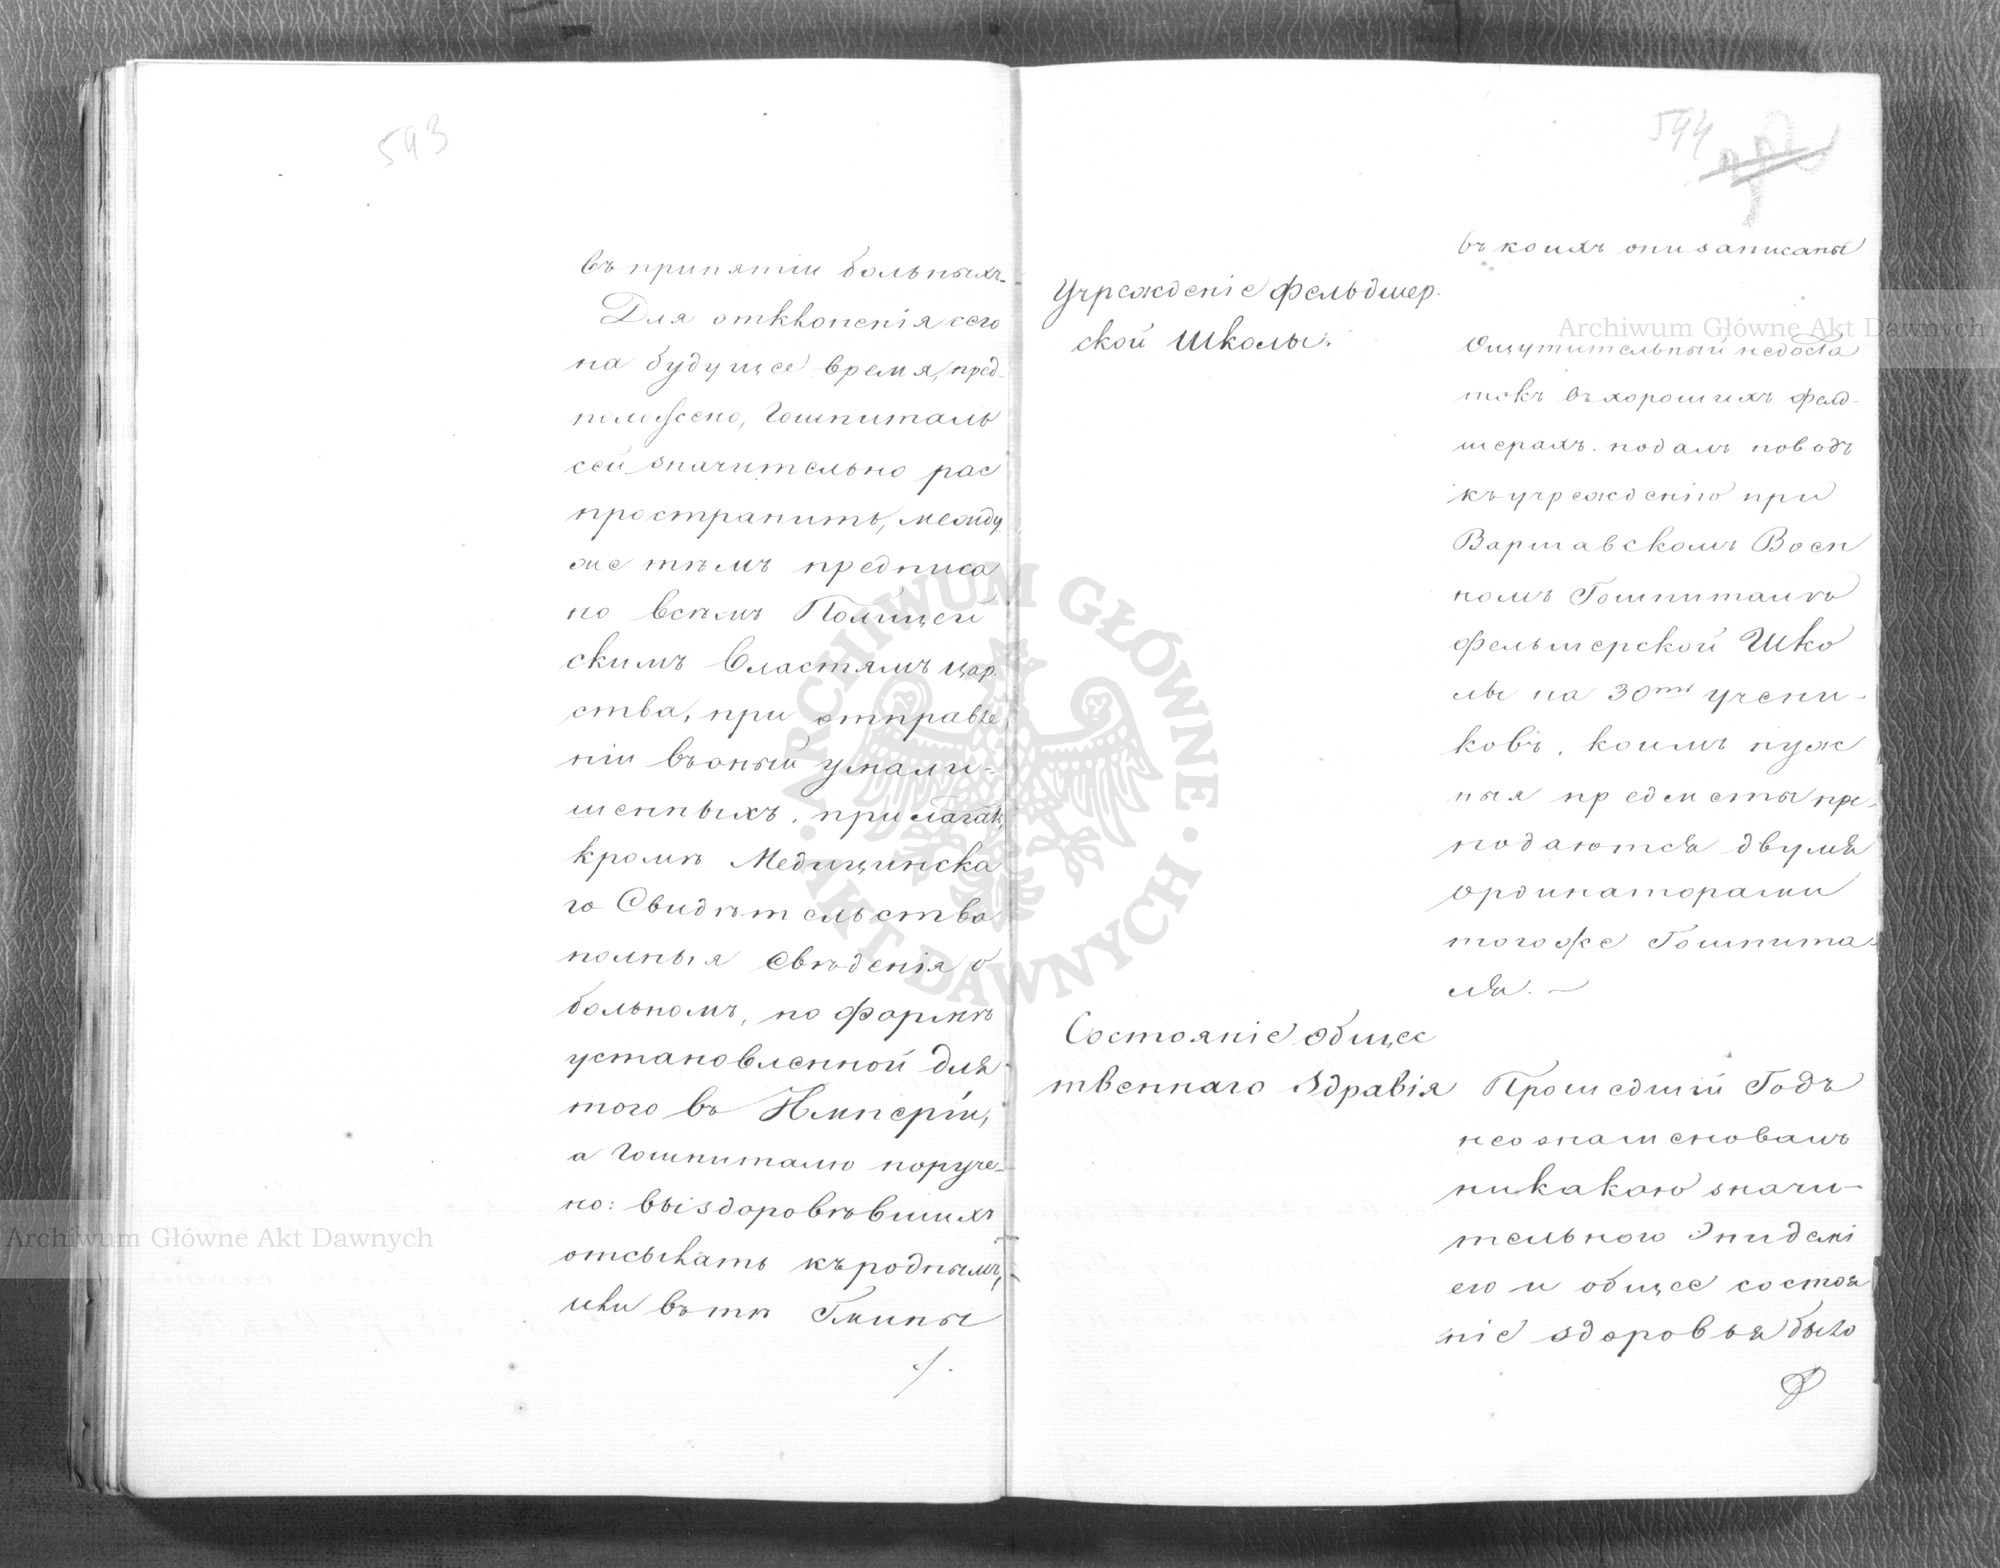 593
въ принятіи больныхъ.
Для отклоненія сего
на будущее время, пред-
положено, Гошпиталь
сей значительно рас
пространить, между
же тѣмъ предписа
но всѣмъ Полицей
скимъ Властямъ Цар
ства, при отправле
ніи въ оный умали-
шенныхъ, прилагать,
кромѣ Медицинска
го Свидѣтельства
полныя свѣденія о
больномъ, по формѣ
установленной для
того въ Имперіи,
а Гошпиталю поруче-
но: выздоровѣвшихъ
отсылать къ роднымъ,
или въ тѣ Гмины
594
въ коихъ они записаны
Учрежденіе Фельдшер-
ской Школы.
Ощутительный недоста
токъ въ хорошихъ фелд-
шерахъ подалъ поводъ
къ учрежденію при
Варшавскомъ Воен
номъ Гошпиталѣ
Фельшерской Шко
лы на 30ти учени-
ковъ, коимъ нуж
ныя предметы пре-
подаются двумя
ординаторами
того же Гошпита-
ля. —
Состояніе общес
твеннаго Здравія
Прошедшій Годъ
не ознаменованъ
никакою значи-
тельною Эпидемі
ею и общее состоя
ніе здоровья было
Archiwum Główne Akt Dawnych
Archiwum Główne Akt Dawnych
ARCHIWUM GŁÓWNE · AKT DAWNYCH ·